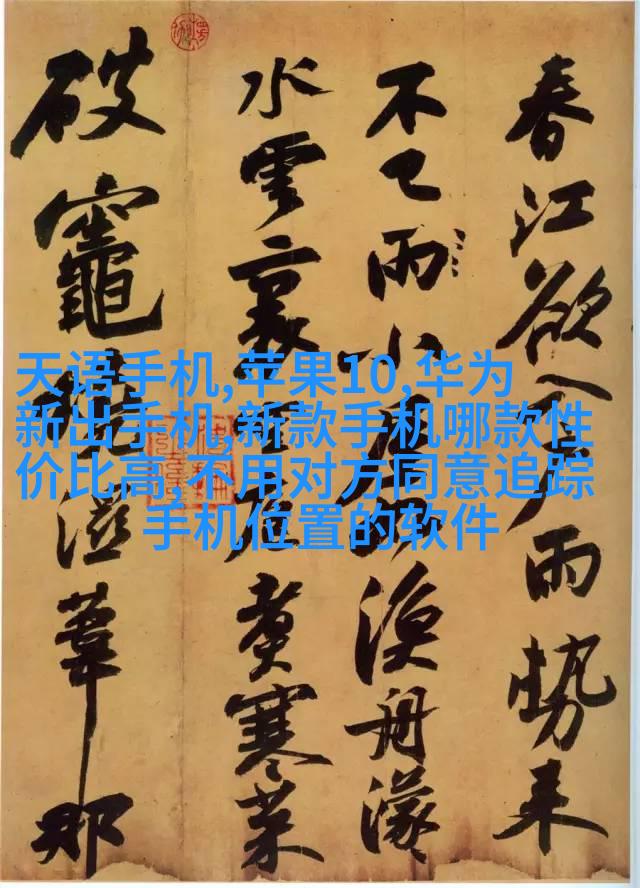 春江欲入户雨勢来
不已雨小屋如漁舟濛
水雲裏空庖煮寒菜
破竈燒溼葦那
天语手机,苹果10,华为
新出手机,新款手机哪款性
价比高,不用对方同意追踪
手机位置的软件